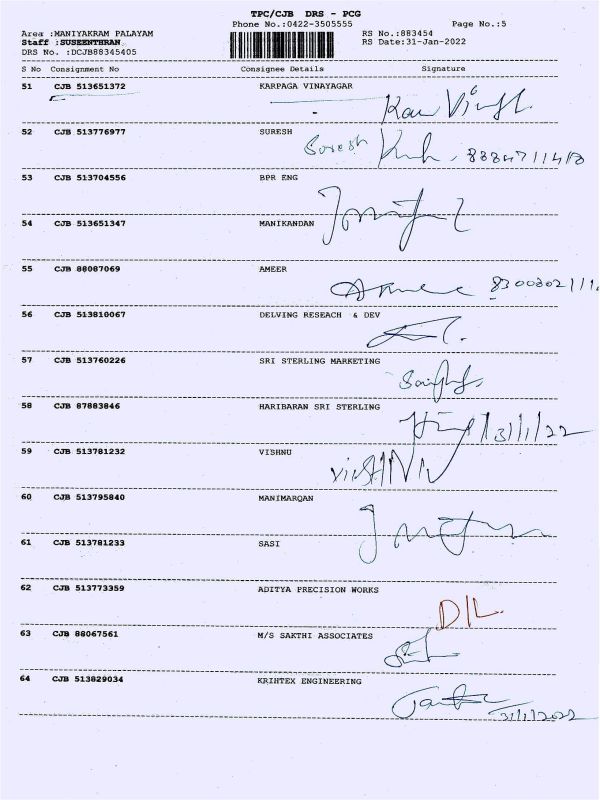 TPC/CJB DRS - PCG
Phone No.:0422-3505555 Page No.:5
Area :MANIYAKRAM PALAYAM RS No.:883454
Staff :SUSEENTHRAN RS Date:31-Jan-2022
DRS No. :DCJB88345405
S No Consignment No Consignee Details Signature
51 CJB 513651372 KARPAGA VINAYAGAR
52 CJB 513776977 SURESH
Suresh
53 CJB 513704556 BPR ENG
54 CJB 513651347 MANIKANDAN
55 CJB 88087069 AMEER
56 CJB 513810067 DELVING RESEACH & DEV
57 CJB 513760226 SRI STERLING MARKETING
58 CJB 87883846 HARIBARAN SRI STERLING
31/1/22
59 CJB 513781232 VISHNU
60 CJB 513795840 MANIMARQAN
61 CJB 513781233 SASI
62 CJB 513773359 ADITYA PRECISION WORKS
63 CJB 88067561 M/S SAKTHI ASSOCIATES
64 CJB 513829034 KRIHTEX ENGINEERING
31/1/2022